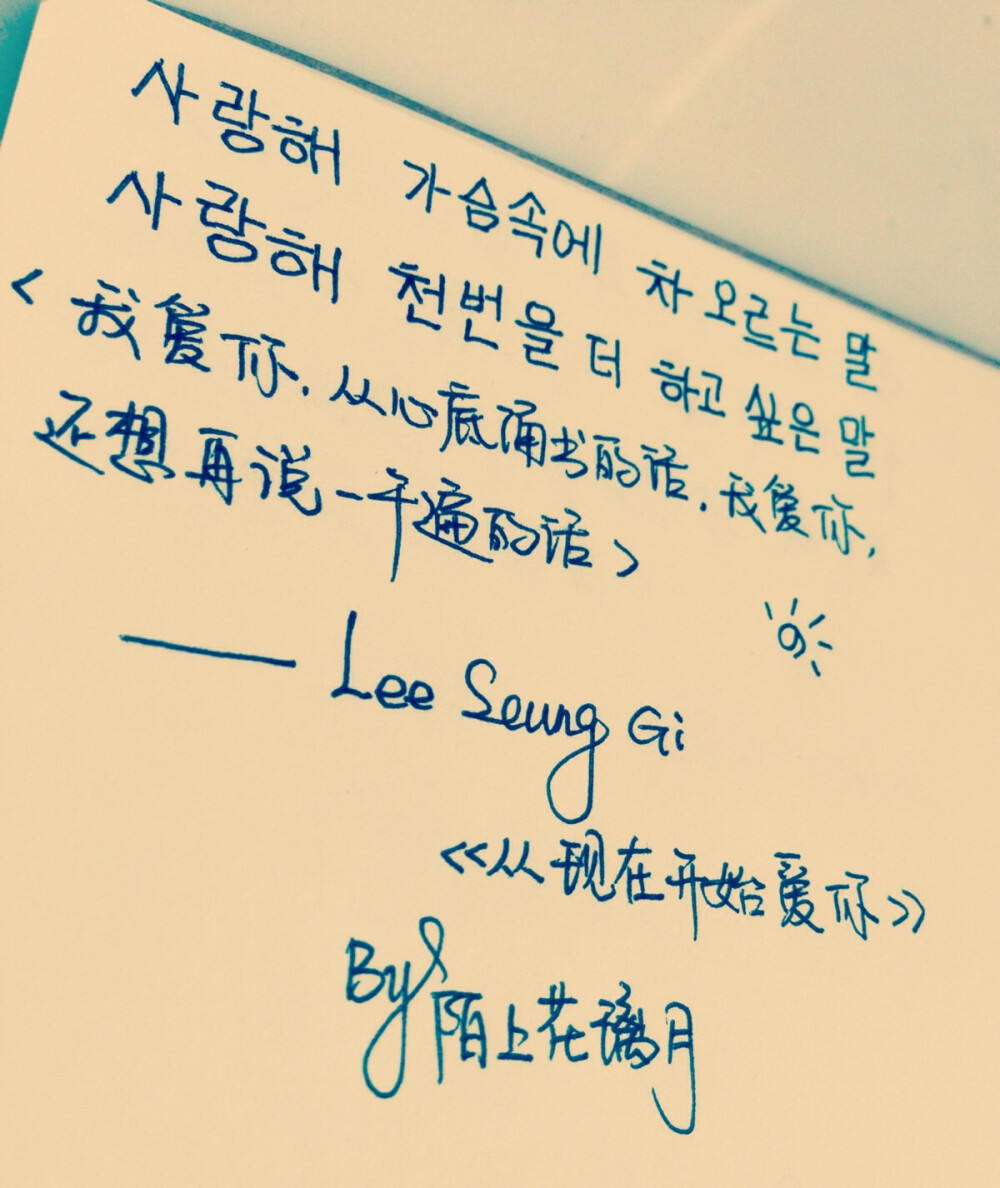 사랑해 가슴속에 차오르는 말
사랑해 천번을 더 하고 싶은 말
<我爱你.从心底涌出的话.我爱你,
还想再说一千遍的话>
—— Lee Seung Gi
<<从现在开始爱你>>
By 陌上花璃月